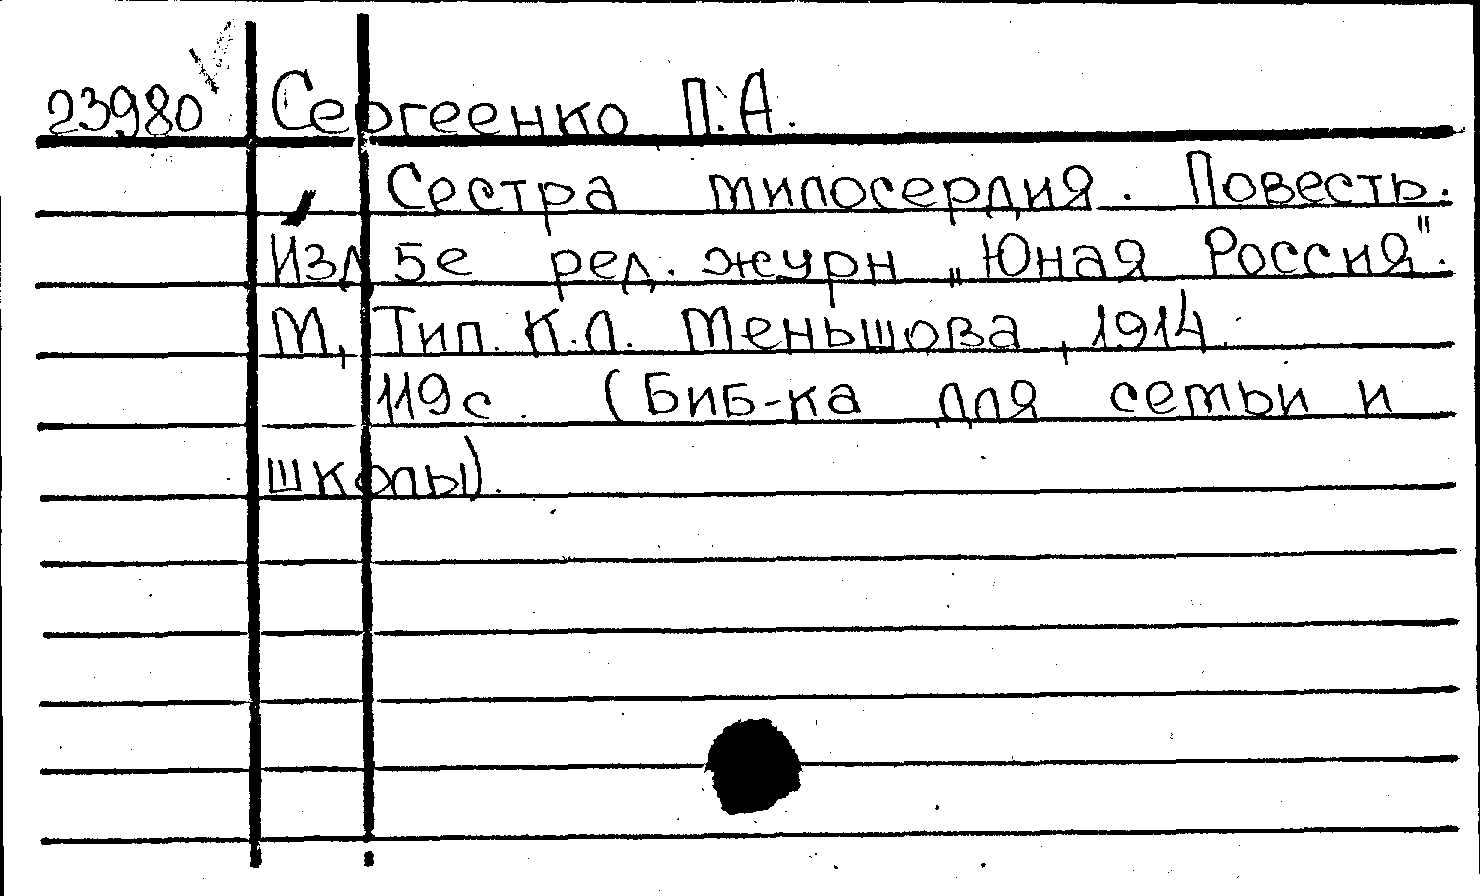 23980 Сергеенко П.А.
Сестра милосердия. Повесть.
Изд 5е ред. журн „Юная Россия".
М, Тип. К.Л. Меньшова, 1914.
119с. (Биб-ка для семьи и
школы).